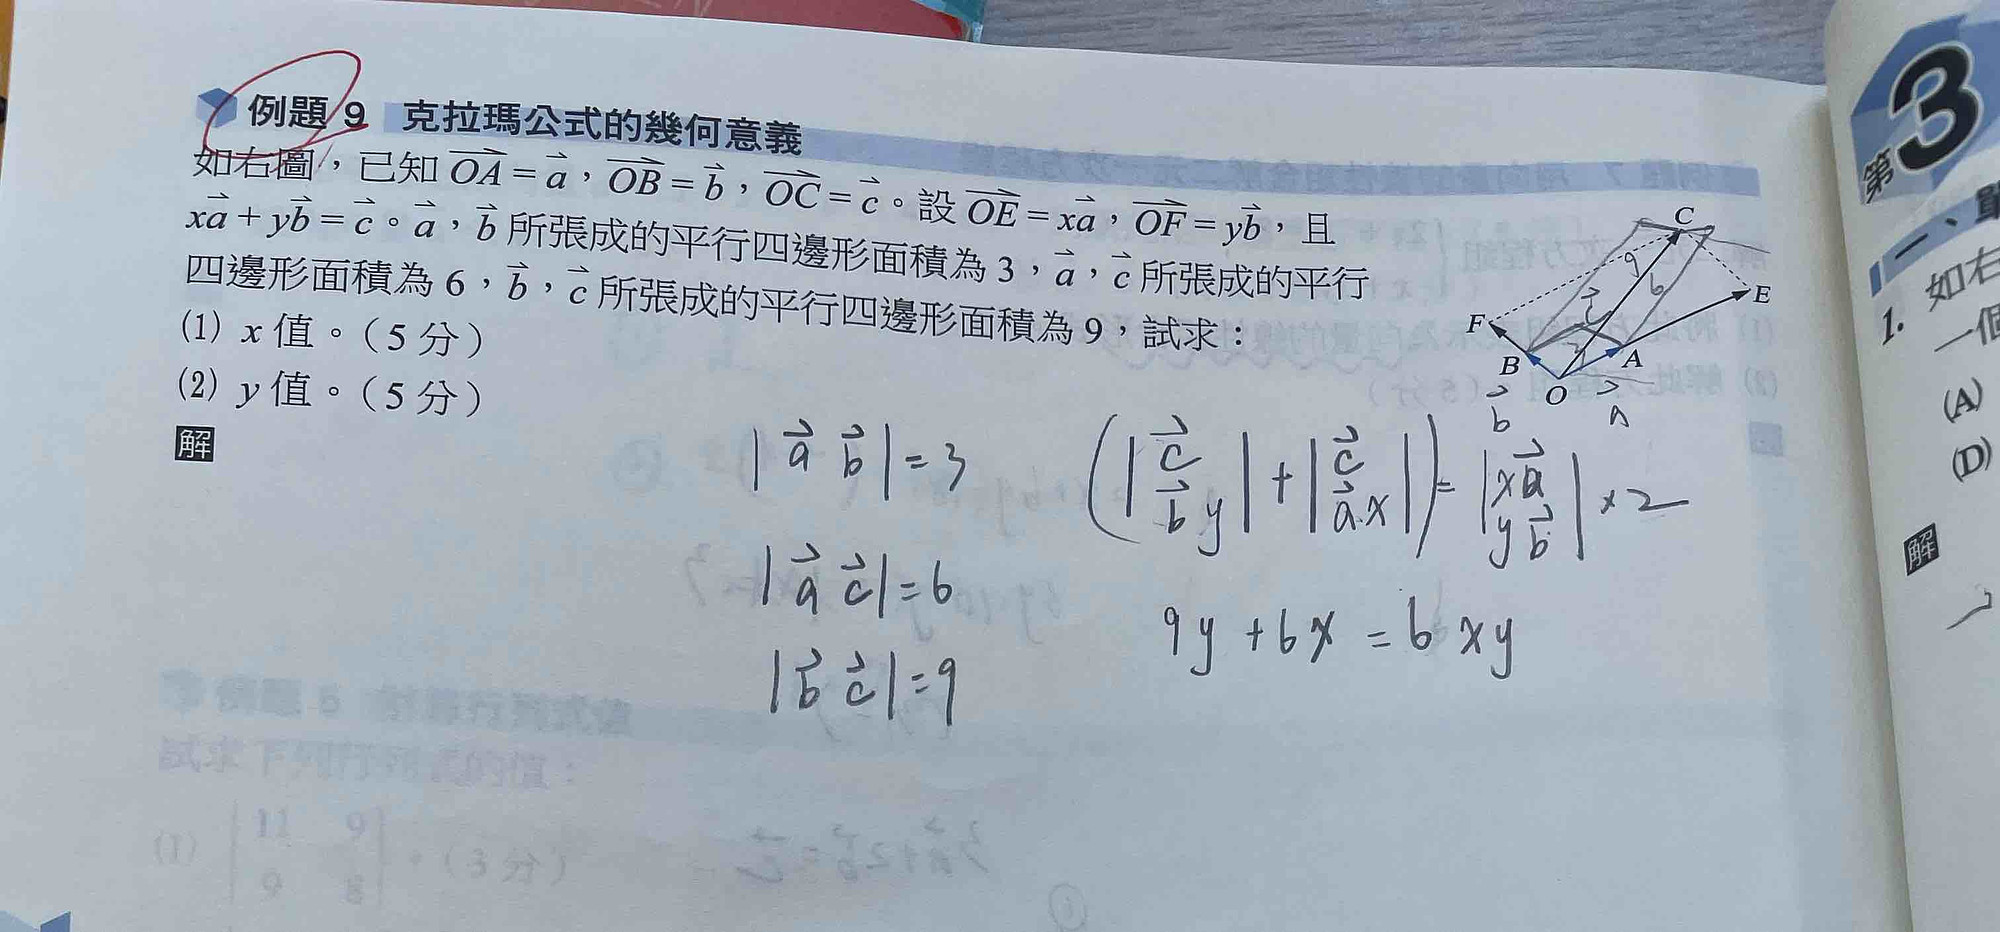 例題 9 克拉瑪公式的幾何意義
如右圖，已知 $\overrightarrow{OA}=\vec{a}$，$\overrightarrow{OB}=\vec{b}$，$\overrightarrow{OC}=\vec{c}$。設 $\overrightarrow{OE}=x\vec{a}$，$\overrightarrow{OF}=y\vec{b}$，且
$x\vec{a}+y\vec{b}=\vec{c}$。$\vec{a}$，$\vec{b}$ 所張成的平行四邊形面積為 3，$\vec{a}$，$\vec{c}$ 所張成的平行
四邊形面積為 6，$\vec{b}$，$\vec{c}$ 所張成的平行四邊形面積為 9，試求：
(1) x 值。（5 分）
(2) y 值。（5 分）
解
C
E
F
B
A
O
$\vec{b}$
$\vec{a}$
9
6
$\vec{c}$
3
$|\vec{a}\ \vec{b}|=3$
$|\vec{a}\ \vec{c}|=6$
$|\vec{b}\ \vec{c}|=9$
$\left(\begin{vmatrix}\vec{c}\\ \vec{b}y\end{vmatrix}+\begin{vmatrix}\vec{c}\\ \vec{a}x\end{vmatrix}\right)=\begin{vmatrix}x\vec{a}\\ y\vec{b}\end{vmatrix}\times 2$
9y + 6x = 6xy
第 3
一、單
1. 如右
一個
(A)
(D)
解